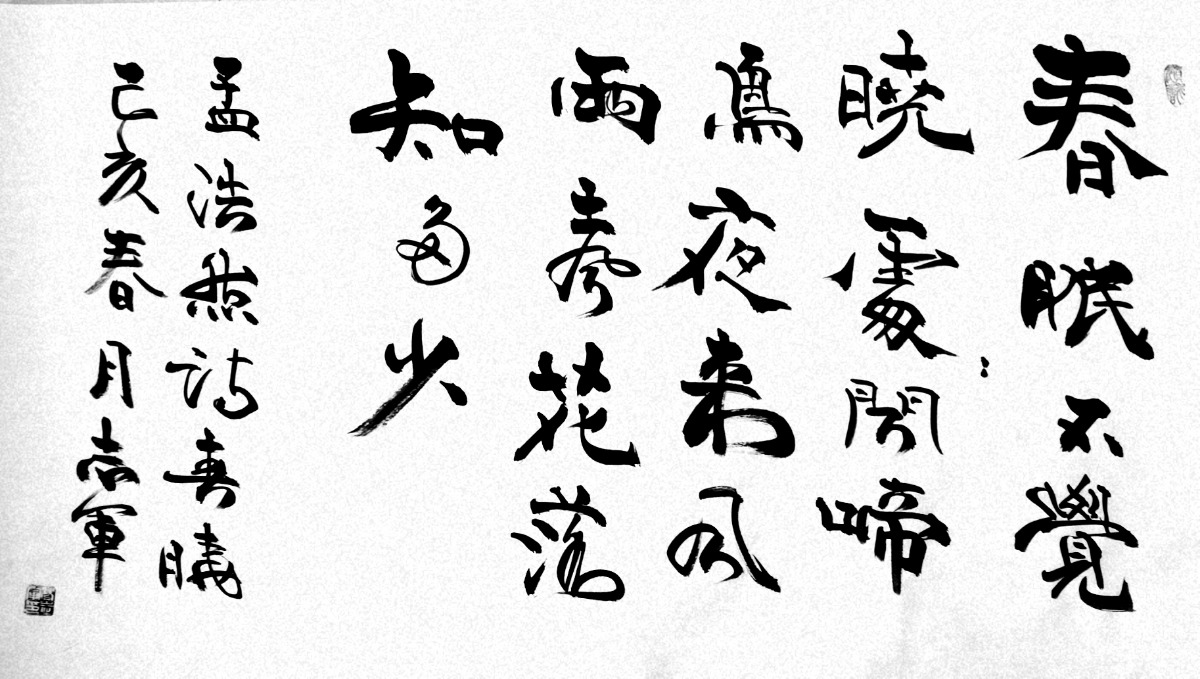 春眠不覺
曉處〻聞啼
鳥夜来風
雨声花落
知多少
孟浩然詩春曉
己亥春月志軍